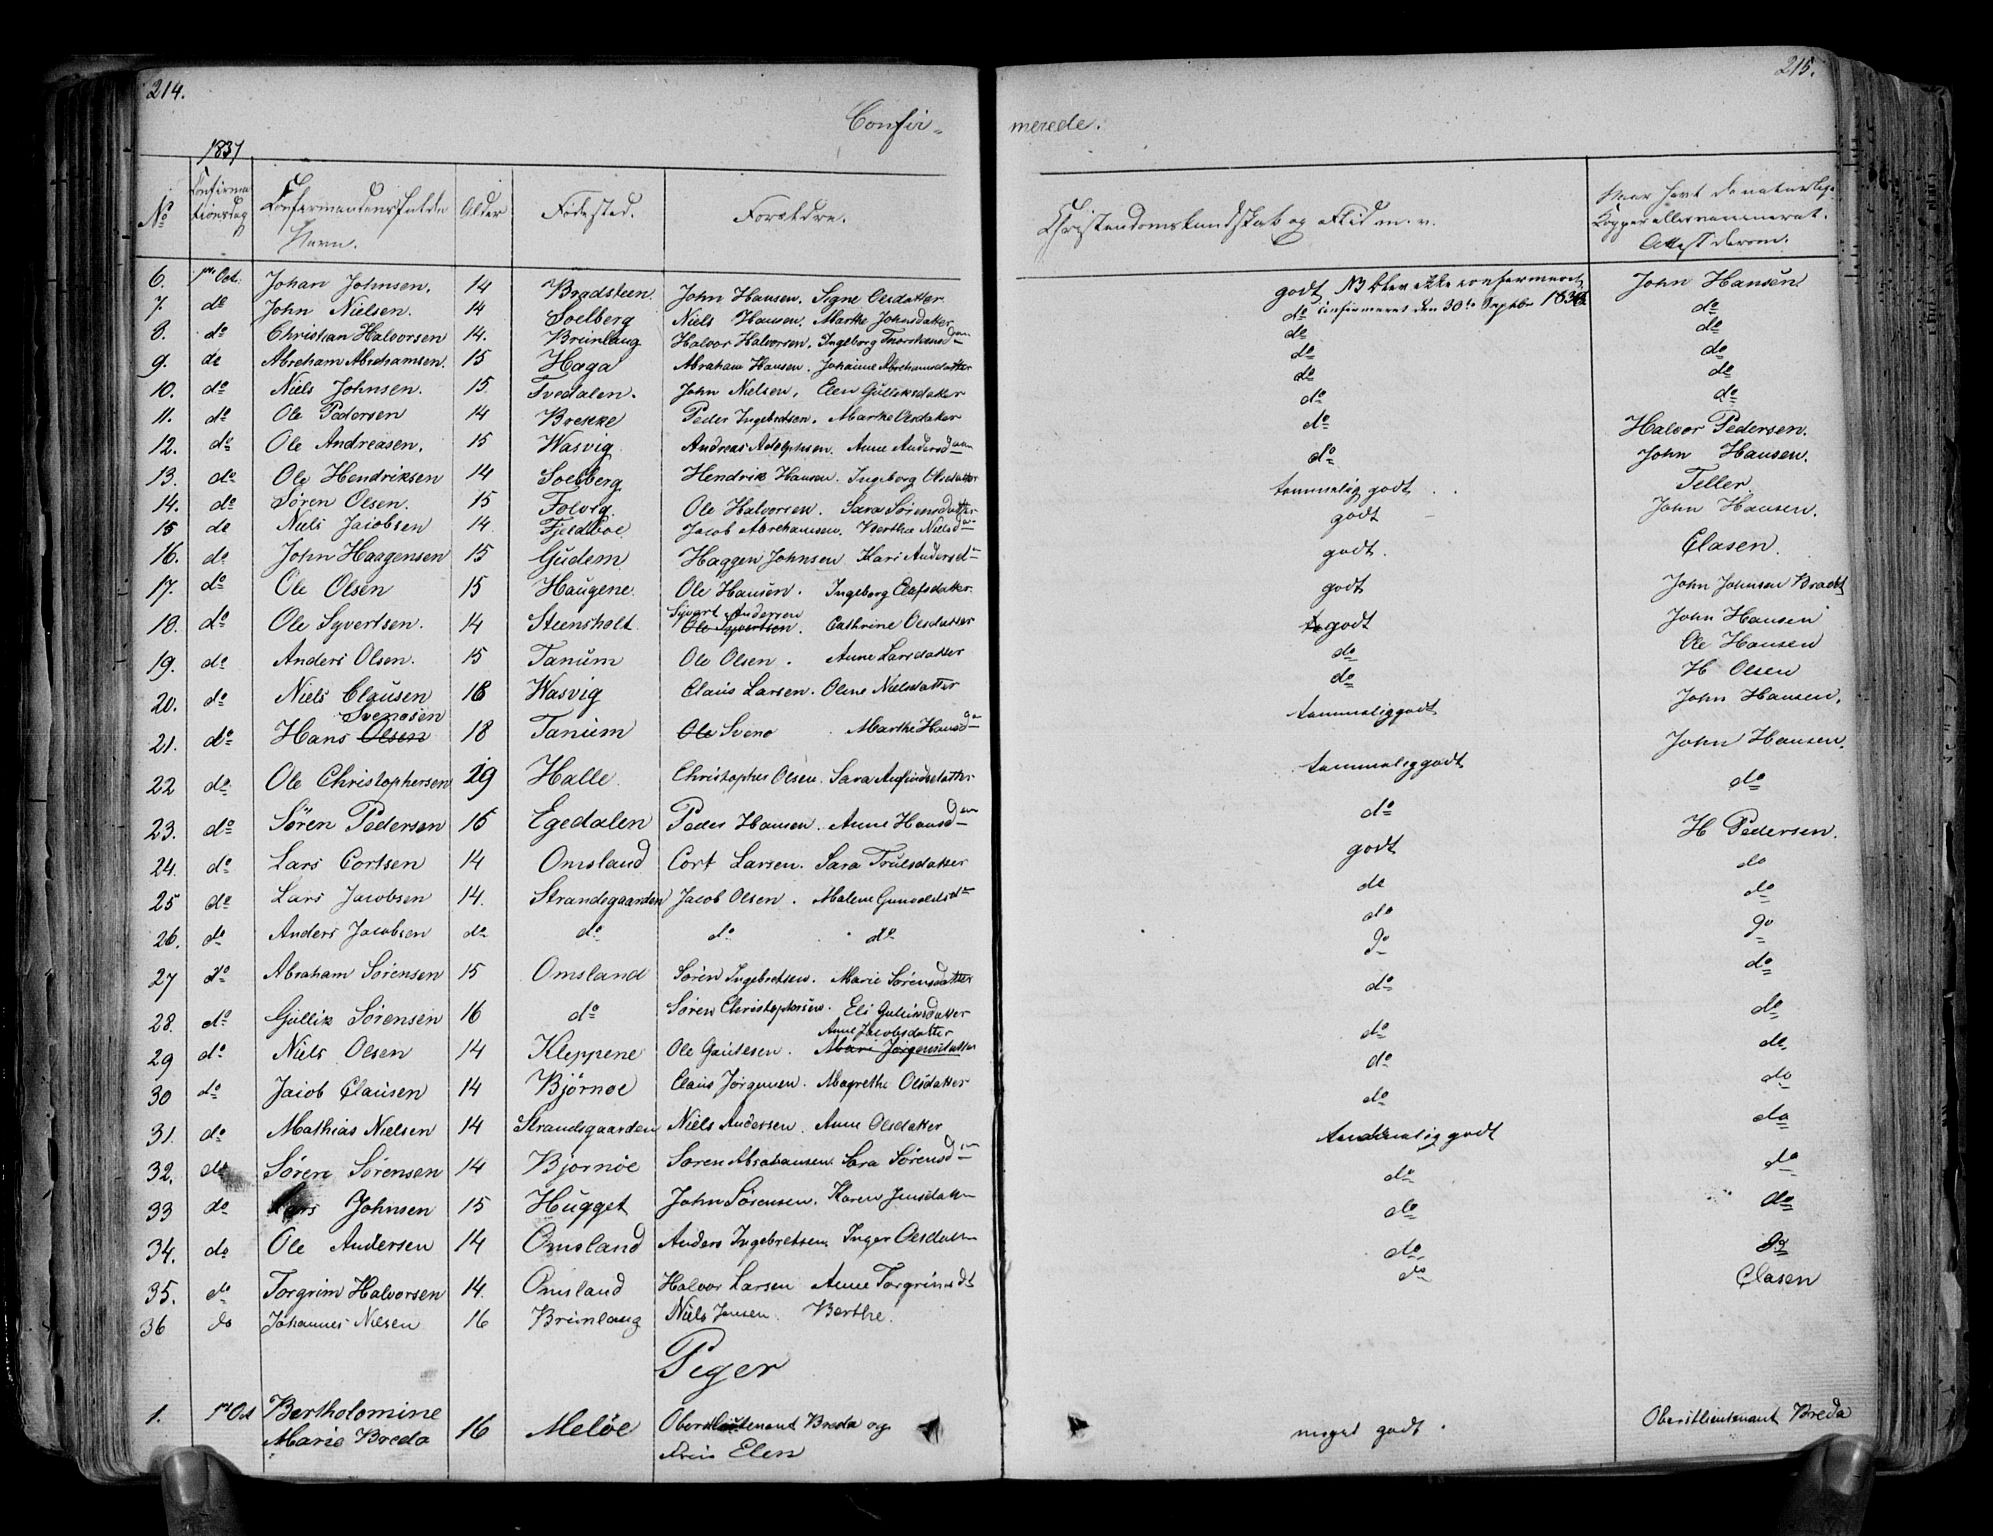 214.
215.
Confir-
merede.
1837
No
Confirmationsdag
Confirmandens fulde Navn.
Alder
Födested.
Forældre.
Christendomskundskab og Flid m. v.
Naar havt de naturlige Kopper eller vaccineret. Attest derom.
6. 1ste Oct. Johan Johnsen. 14 Bradsteen. John Hansen. Signe Olsdatter godt NB blev ikke confirmeret John Hansen
7. do John Nielsen. 14 Soelberg Niels Hansen. Marthe Johnsdatter do confirmeret den 30te Septbr 1838 do
8. do Christian Halvorsen 14. Brunlaug Halvor Halvorsen. Ingeborg do do
9. do Abraham Abrahamsen. 15 Haga Abraham Hansen. Johanne Abrahamsdatter do do
10. do Niels Johnsen. 15. Tvedalen. John Nielsen. Elen Gulliksdatter do do
11. do Ole Pedersen 14 Brekke Peder Ingebretsen. Marthe Olsdatter do do
12. do Ole Andreasen. 15 Wasvig Andreas Adolphsen. Anne Andersd do Halvor Pedersen.
13. do Ole Hendriksen 14 Soelberg Hendrik Hansen. Ingeborg Olsdatter do John Hansen.
14. do Søren Olsen. 15 Folvig Ole Halvorsen. Sara Sørensdatter temmelig godt Teller
15 do Niels Jacobsen 14. Fjeldboe Jacob Abrahamsen. Berthe Nielsd godt John Hansen.
16. do John Haagensen 15 Gudem Haagen Johnsen Kari Andersd godt. Clasen.
17. do Ole Olsen 15 Haugene. Ole Hansen. Ingeborg Olafsdatter godt John Johnsen Bradst
Syvert Andersen
18. do Ole Syvertsen. 14 Steensholt Ole Syvertsen. Cathrine Olsdatter godt John Hansen
19. do Anders Olsen. 15 Tanum Ole Olsen. Anne Larsdatter do Ole Hansen
20. do Niels Clausen 18 Wasvig Claus Larsen. Oline Nielsdatter do H Olsen
Svendsen
21. do Hans Olsen 18 Tanum Ole Svend Marthe Hansd temmelig godt John Hansen.
22 do Ole Christophersen 19 Halle. Christopher Olsen. Sara temmelig godt John Hansen.
23. do Søren Pedersen 16 Egedalen Peder Hansen. Anne Hansd do do
24. do Lars Cortsen 14 Omsland Cort Larsen. Sara Trulsdatter godt H Pedersen.
25 do Lars Jacobsen 14. Strandsgaarden Jacob Olsen. Malene do do
26. do Anders Jacobsen do do do do do do
27 do Abraham Sørensen 15 Omsland Søren Ingebretsen. Marie Sørensdatter do do
28. do Gullik Sørensen 16 do Søren Christophersen. Eli Gulliksdatter do do
Anne Jacobsdatter
29 do Niels Olsen 14 Kleppene Ole Gautesen. Mari Jørgensdatter do do
30 do Jacob Clausen 14 Bjørnøe Claus Jørgensen. Magrethe Olsdatter do do
31. do Mathias Nielsen 14 Strandsgaarden Niels Andersen. Anne Olsdatter do do
32. do Søren Sørensen 14 Bjørnöe Søren Abrahamsen. Sara Sørensd temmelig godt do
33 do Lars Johnsen 15 Hugget John Sørensen. Karen Jensdatter do do
34. do Ole Andersen 14 Omsland Anders Ingebretsen Inger Olsdatter do do
35. do Torgrim Halvorsen 14. Omsland Halvor Larsen Anne Torgrimsdt do do
36 do Johannes Nilsen 16 Brunlaug Niels Jensen. Berthe. do Clasen
Piger
1. 1ste Oct Bertholomine Marie Breda 16 Meløe Oberstlieutenant Breda og Frue Elen meget godt. Oberstlieutenant Breda